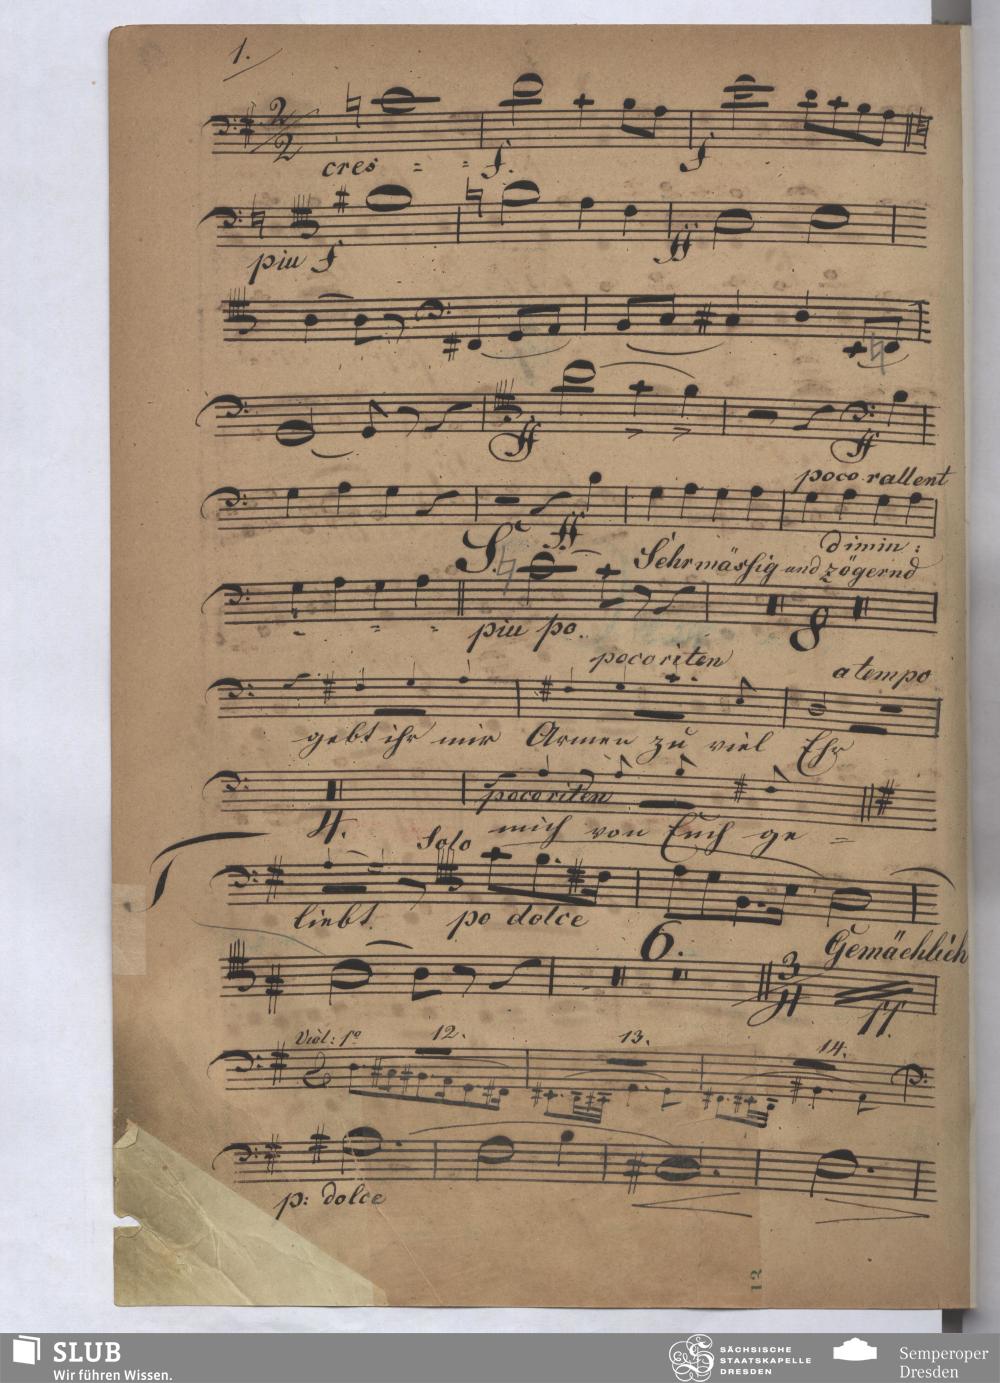 1.
2/2
cres - - f. f
piu f ff
ff ff
poco rallent
ff dimin:
Sehr mässig und zögernd
piu po.
8
poco riten a tempo
gebt ihr mir Armen zu viel Ehr
poco riten
4. mich von Euch ge -
Solo
liebt. po dolce
6. Gemächlich
3/4 11.
Viol: 1º 12. 13. 14.
p: dolce
12
SLUB
Wir führen Wissen.
SÄCHSISCHE
STAATSKAPELLE
DRESDEN
Semperoper
Dresden